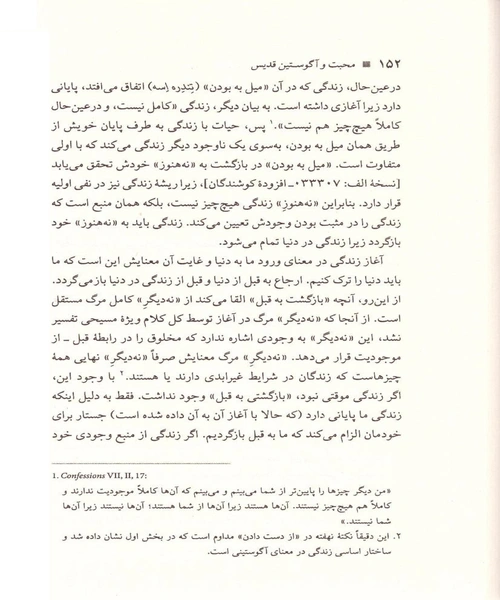 ۱۵۲ ■ محبت و آگوستین قدیس
درعین‌حال، زندگی که در آن «میل به بودن» (تندره اسه) اتفاق می‌افتد، پایانی
دارد زیرا آغازی داشته است. به بیان دیگر، زندگی «کامل نیست، و درعین‌حال
کاملاً هیچ‌چیز هم نیست».۱ پس، حیات با زندگی به طرف پایان خویش از
طریق همان میل به بودن، به‌سوی یک ناوجود دیگر زندگی می‌کند که با اولی
متفاوت است. «میل به بودن» در بازگشت به «نه‌هنوز» خودش تحقق می‌یابد
[نسخهٔ الف: ۰۳۳۳۰۷ـ افزودهٔ کوشندگان]، زیرا ریشهٔ زندگی نیز در نفی اولیه
قرار دارد. بنابراین «نه‌هنوز» زندگی هیچ‌چیز نیست، بلکه همان منبع است که
زندگی را در مثبت بودن وجودش تعیین می‌کند. زندگی باید به «نه‌هنوز» خود
بازگردد زیرا زندگی در دنیا تمام می‌شود.
آغاز زندگی در معنای ورود ما به دنیا و غایت آن معنایش این است که ما
باید دنیا را ترک کنیم. ارجاع به قبل از دنیا و قبل از زندگی در دنیا بازمی‌گردد.
از این‌رو، آنچه «بازگشت به قبل» القا می‌کند از «نه‌دیگرِ» کامل مرگ مستقل
است. از آنجا که «نه‌دیگر» مرگ در آغاز توسط کل کلام ویژهٔ مسیحی تفسیر
نشد، این «نه‌دیگر» به وجودی اشاره ندارد که مخلوق را در رابطهٔ قبل ـ از
موجودیت قرار می‌دهد. «نه‌دیگر» مرگ معنایش صرفاً «نه‌دیگرِ» نهایی همهٔ
چیزهاست که زندگان در شرایط غیرابدی دارند یا هستند.۲ با وجود این،
اگر زندگی موقتی نبود، «بازگشتی به قبل» وجود نداشت. فقط به دلیل اینکه
زندگی ما پایانی دارد (که حالا با آغاز آن به آن داده شده است) جستار برای
خودمان الزام می‌کند که ما به قبل بازگردیم. اگر زندگی از منبع وجودی خود
1. Confessions VII, II, 17:
«من دیگر چیزها را پایین‌تر از شما می‌بینم و می‌بینم که آن‌ها کاملاً موجودیت ندارند و
کاملاً هم هیچ‌چیز نیستند. آن‌ها هستند زیرا آن‌ها از شما هستند؛ آن‌ها نیستند زیرا آن‌ها
شما نیستند.»
۲. این دقیقاً نکتهٔ نهفته در «از دست دادن» مداوم است که در بخش اول نشان داده شد و
ساختار اساسی زندگی در معنای آگوستینی است.